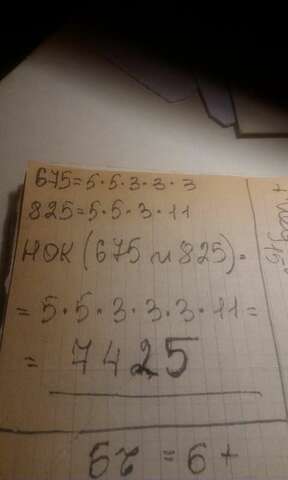 675=5·5·3·3·3
825=5·5·3·11
НОК (675 и 825) =
= 5·5·3·3·3·11 =
= 7425
5г = 6 +